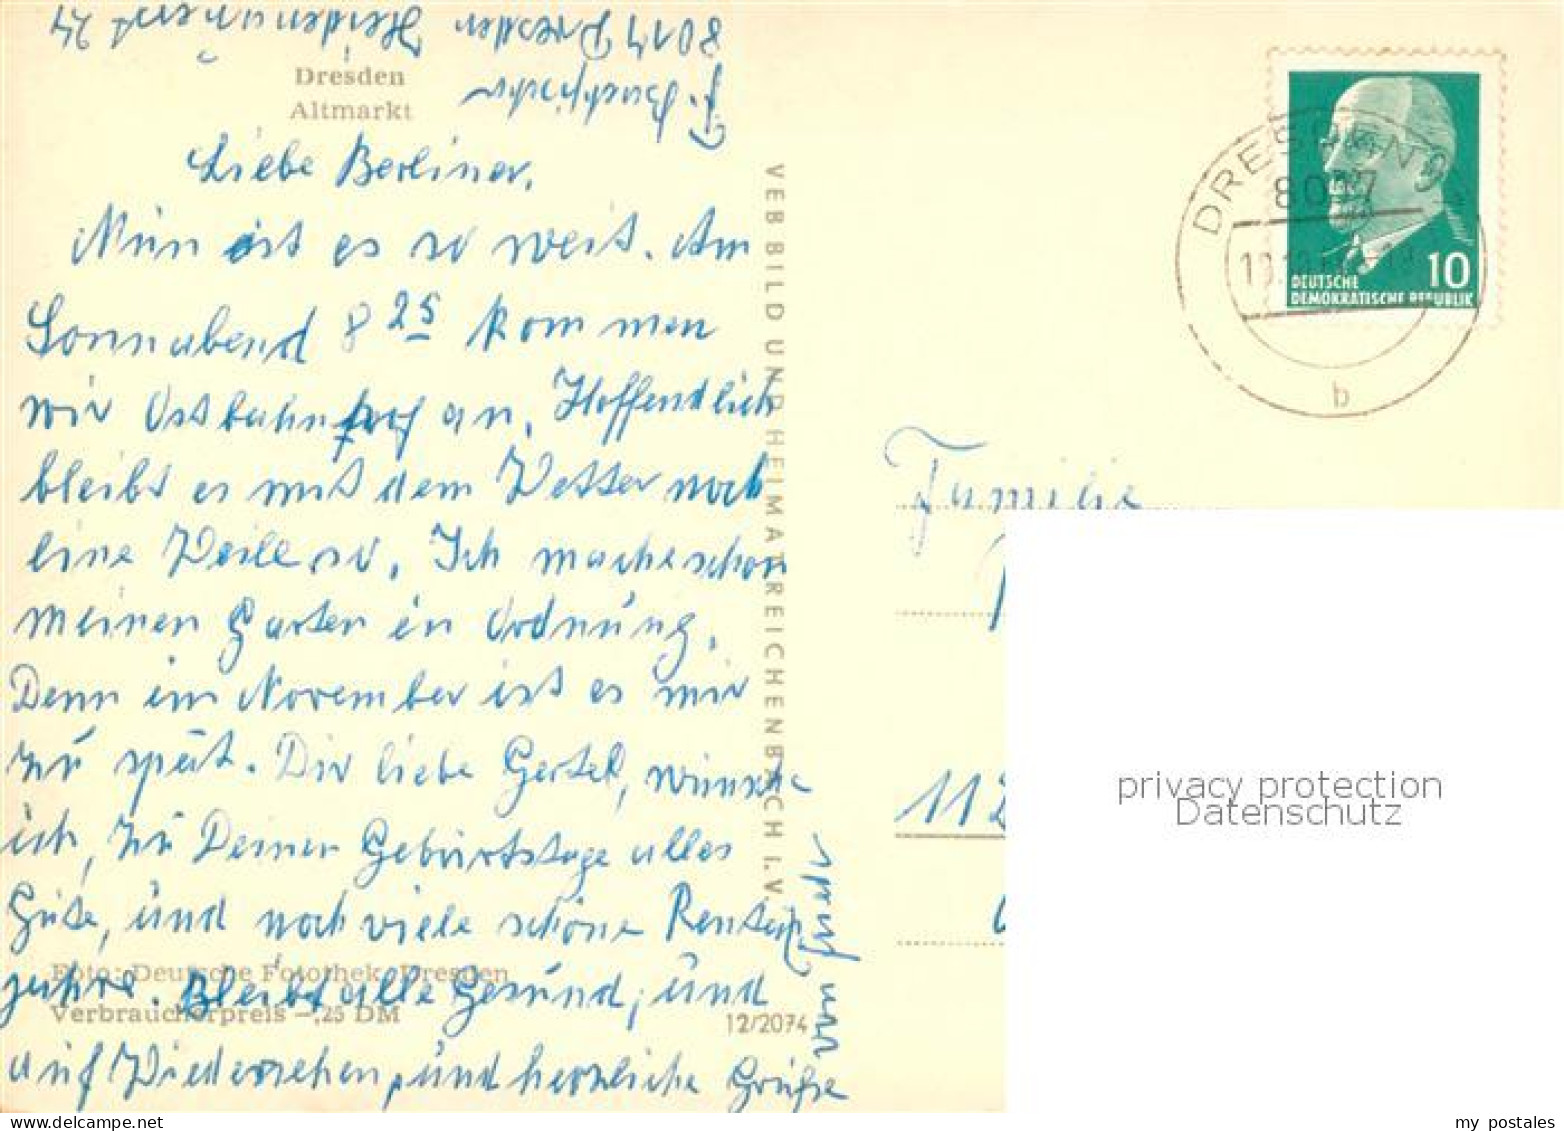 8017 Dresden
Dresden
Altmarkt
Liebe Berliner,
Nun ist es so weit. Am
Sonnabend 8 25 kommen
wir Ostbahnhof an. Hoffendlich
bleibt es mit dem Wetter noch
eine Weile so. Ich mache schon
meinen Garten in Ordnung.
Denn im November ist es mir
zu spät. Dir liebe Gertel, wünsche
ich, zu Deinen Geburtstage alles
Gute, und noch viele schöne Renten
jahre. Bleibt alle Gesund, und
auf Wiedersehen, und herzliche Grüße
von
Foto: Deutsche Fotothek, Dresden
Verbraucherpreis -,25 DM
12/2074
VEB BILD UND HEIMAT REICHENBACH I. V.
DRESDEN
8017
b
10
DEUTSCHE
DEMOKRATISCHE REPUBLIK
Familie
112
privacy protection
Datenschutz
my postales